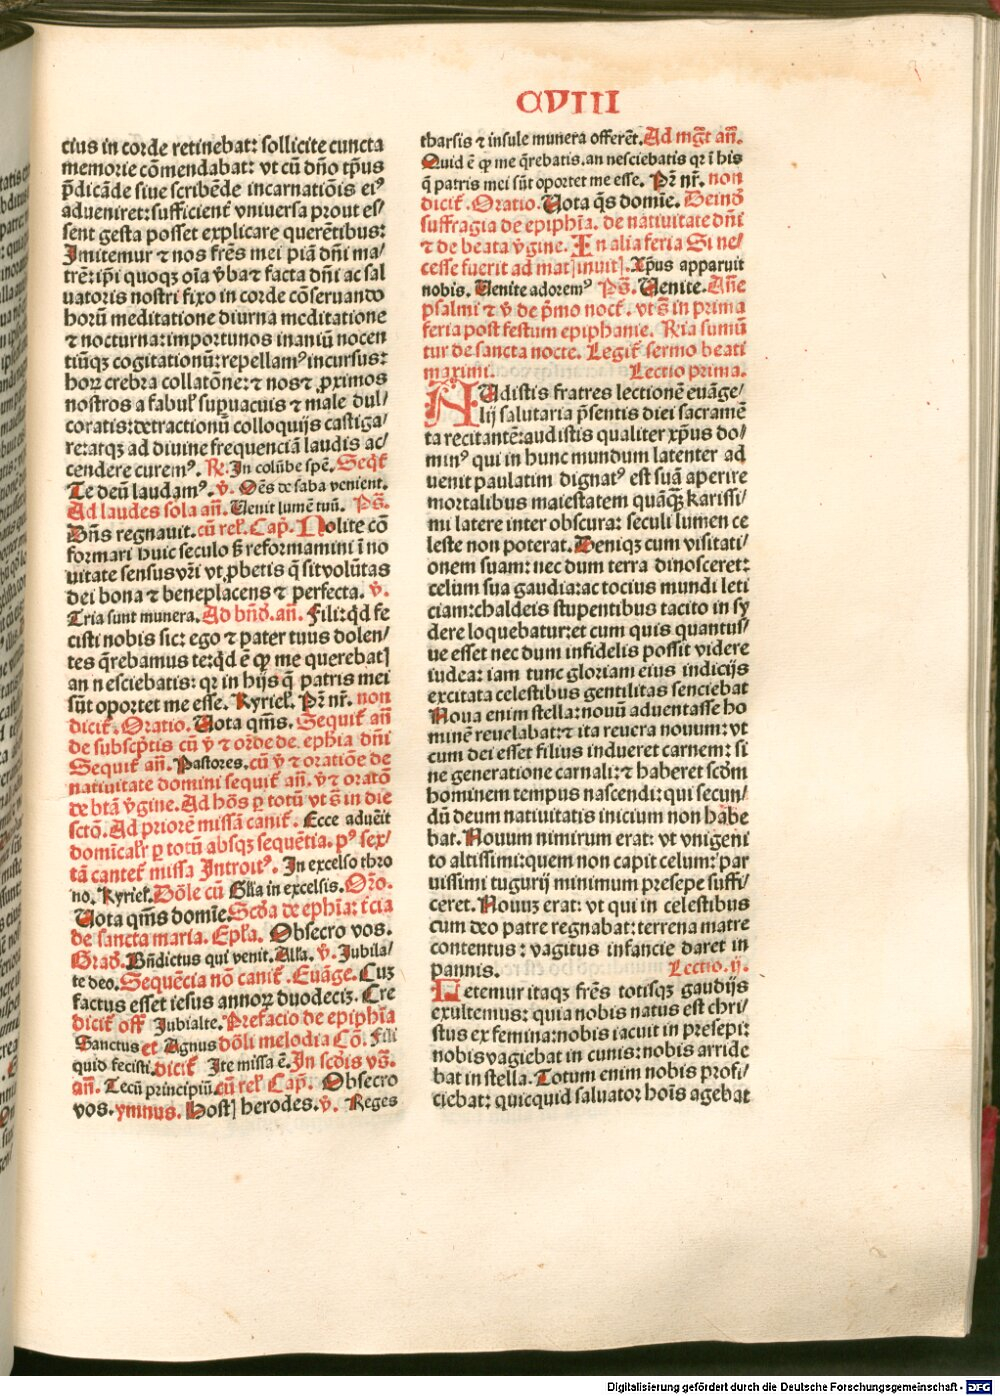 CVIII
cius in corde retinebat: sollicite cuncta
memorie cōmendabat: vt cū dn̄o tp̄us
p̄dicāde siue scribēde incarnatiōis eiꝰ
adueniret: sufficient̄ vniuersa prout es/
sent gesta posset explicare querētibus:
Imitemur ⁊ nos frēs mei piā dn̄i ma/
trē: ip̄i quoqꝫ oīa ṽba ⁊ facta dn̄i ac sal
uatoris nostri fixo in corde cōseruando
horū meditatione diurna meditatione
⁊ nocturna: importunos inaniū nocen
tiūqꝫ cogitationū: repellamꝰ incursus:
hoꝝ crebra collatōne: ⁊ nos ⁊ ꝓximos
nostros a fabuł supuacuis ⁊ male dul/
coratis: detractionū colloquijs castiga/
re: atqꝫ ad diuine frequenciā laudis ac/
cendere curemꝰ. Re. In colūbe spē. Seqt̄
Te deū laudamꝰ. v̄. Oēs de saba venient.
Ad laudes sola an̄. Uenit lumē tuū. Ps̄.
Dn̄s regnauit. cū rel̄. Cap̄. Nolite cō
formari huic seculo s̄ reformamini ī no
uitate sensus vr̄i vt ꝓbetis q̄ sit volūtas
dei bona ⁊ beneplacens ⁊ perfecta. v̄.
Tria sunt munera. Ad bn̄d. an̄. Fili: qd̄ fe
cisti nobis sic: ego ⁊ pater tuus dolen/
tes q̄rebamus te: qd̄ ē ꝙ me querebat]
an nesciebatis: qr in hijs q̄ patris mei
sūt oportet me esse. Kyrieł. Pr̄ nr̄. non
dicit̄. Oratio. Uota qm̄s. Sequit̄ an̄
de subscp̄tis cū v̄ ⁊ or̄de de ephīa dn̄i
Sequit̄ an̄. Pastores. cū v̄ ⁊ oratiōe de
natiuitate domini sequit̄ an̄. v̄ ⁊ oratō
de btā v̄gine. Ad hōs ꝑ totū vt s̄ in die
sctō. Ad priorē missā canit̄. Ecce aduēit
domīcalr̄ ꝑ totū absqꝫ sequētia. pꝰ sex/
tā cantet̄ missa Introitꝰ. In excelso thro
no. Kyrieł. Dōle cū Gl̄ia in excelsis. Or̄o.
Uota qm̄s domīe. Scd̄a de ephīa: t̄cia
de sancta maria. Ep̄ła. Obsecro vos.
Grad̄. Bn̄dictus qui venit. Alł̄a. v̄. Jubila/
te deo. Sequēcia nō canit̄. Euāge. Cuꝫ
factus esset iesus annoꝝ duodeciꝫ. Cre
dicit̄ off̄ Jubialte. Prefacio de epiphīa
Sanctus et Agnus dōli melodia Cō. Fili
quid fecisti. dicit̄ Ite missa ē. In scd̄is vs̄.
an̄. Tecū principiū. cū rel̄ Cap̄. Obsecro
vos. ymnus. Host] herodes. v̄. Reges
tharsis ⁊ insule munera offerēt. Ad mgt̄ an̄.
Quid ē ꝙ me q̄rebatis. an nesciebatis qr ī his
q̄ patris mei sūt oportet me esse. Pr̄ nr̄. non
dicit̄. Oratio. Uota q̄s domīe. Deinḋ
suffragia de epiphīa. de natiuitate dn̄i
⁊ de beata v̄gine. In alia feria Si ne/
cesse fuerit ad mat]inuit]. Xp̄us apparuit
nobis. Uenite adoremꝰ Ps̄. Uenite. An̄e
psalmi ⁊ v̄ de p̄mo noct̄. vt s̄ in prima
feria post festum epiphanie. Ria sumū
tur de sancta nocte. Legit̄ sermo beati
maximi. Lectio prima.
AUdistis fratres lectionē euāge/
lij salutaria p̄sentis diei sacramē
ta recitantē: audistis qualiter xp̄us do/
minꝰ qui in hunc mundum latenter ad
uenit paulatim dignatꝰ est suā aperire
mortalibus maiestatem quāqꝫ karissi/
mi latere inter obscura: seculi lumen ce
leste non poterat. Deniqꝫ cum visitati/
onem suam: nec dum terra dinosceret:
celum sua gaudia: ac tocius mundi leti
ciam: chaldeis stupentibus tacito in sy
dere loquebatur: et cum quis quantus/
ue esset nec dum infidelis possit videre
iudea: iam tunc gloriam eius indicijs
excitata celestibus gentilitas senciebat
Noua enim stella: nouū aduentasse ho
minē reuelabat: ⁊ ita reuera nouum: vt
cum dei esset filius indueret carnem: si
ne generatione carnali: ⁊ haberet scdm̄
hominem tempus nascendi: qui secun/
dū deum natiuitatis inicium non habe
bat. Nouum nimirum erat: vt vnigeni
to altissimi: quem non capit celum: par
uissimi tugurij minimum presepe suffi/
ceret. Nouuꝫ erat: vt qui in celestibus
cum deo patre regnabat: terrena matre
contentus: vagitus infancie daret in
pannis. Lectio. ij.
Letemur itaqꝫ frēs totisqꝫ gaudijs
exultemus: quia nobis natus est chri/
stus ex femina: nobis iacuit in presepi:
nobis vagiebat in cunis: nobis arride
bat in stella. Totum enim nobis profi/
ciebat: quicquid saluator hoīs agebat
Digitalisierung gefördert durch die Deutsche Forschungsgemeinschaft - DFG